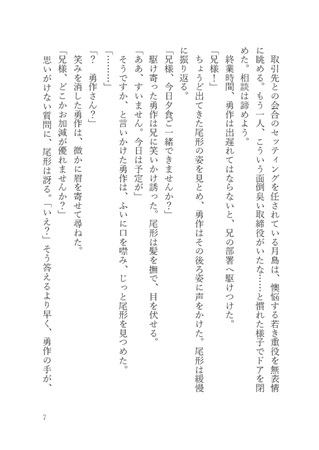 取引先との会合のセッティングを任されている月島は、懊悩する若き重役を無表情
に眺める。もう一人、こういう面倒臭い取締役がいたな……と慣れた様子でドアを閉
めた。相談は諦めよう。
終業時間、勇作は出遅れてはならないと、兄の部署へ駆けつけた。
「兄様！」
ちょうど出てきた尾形の姿を見とめ、勇作はその後ろ姿に声をかけた。尾形は緩慢
に振り返る。
「兄様、今日夕食ご一緒できませんか？」
駆け寄った勇作は兄に笑いかけ誘った。尾形は髪を撫で、目を伏せる。
「ああ、すいません。今日は予定が」
そうですか、と言いかけた勇作は、ふいに口を噤み、じっと尾形を見つめた。
「………」
「？　勇作さん？」
笑みを消した勇作は、微かに眉を寄せて尋ねた。
「兄様、どこかお加減が優れませんか？」
思いがけない質問に、尾形は訝る。「いえ？」そう答えるより早く、勇作の手が、
7